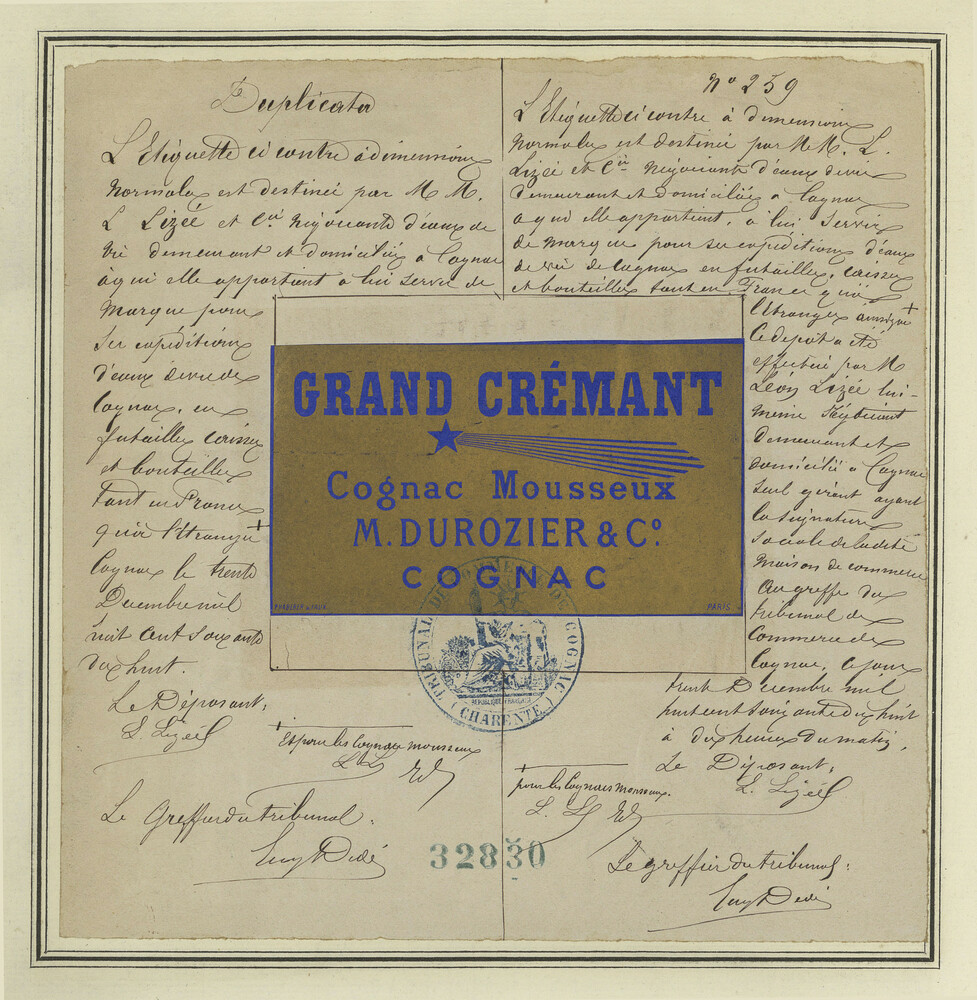 Duplicata
L'Etiquette ci contre à dimensions
normales est destinée par M M.
L Lizée et Cie Négociants d'eaux de
vie demeurant et domiciliés à Cognac
à qui elle appartient à lui servir de
marque pour
ses expéditions
d'eaux de vie de
Cognac, en
futailles caisses
et bouteilles
tant en France
qu'à l'étranger +
Cognac le trente
Décembre mil
huit cent soixante
dix huit.
Le Déposant,
L. Lizée
+
et pour les Cognacs mousseux
L L ED
Le Greffier du tribunal.
Eug Dedé
No 259
L'Etiquette ci contre à dimensions
normales est destinée par M. M. L.
Lizée et Cie Négociants d'eaux de vie
demeurant et domiciliés à Cognac
à qui elle appartient, à lui servir
de marque pour ses expéditions d'eaux
de vie de Cognac en futailles, caisses
et bouteilles tant en France qu'à
l'étranger +
ce dépôt a été
effectué par M
Léon Lizée lui-
même Négociant
demeurant et
domicilié à Cognac
seul gérant ayant
la signature
sociale de la dite
maison de commerce
Au greffe du
tribunal de
Commerce de
Cognac, ce jour
trente Décembre mil
huit cent soixante dix huit
à dix heures du matin.
Le Déposant,
L. Lizée
+
pour les Cognacs mousseux.
L. L ED
Le greffier du tribunal:
Eug Dedé
GRAND CRÉMANT
Cognac Mousseux
M. DUROZIER & Co.
COGNAC
PARIS
TRIBUNAL DE COMMERCE DE COGNAC
RÉPUBLIQUE FRANÇAISE
(CHARENTE)
32830